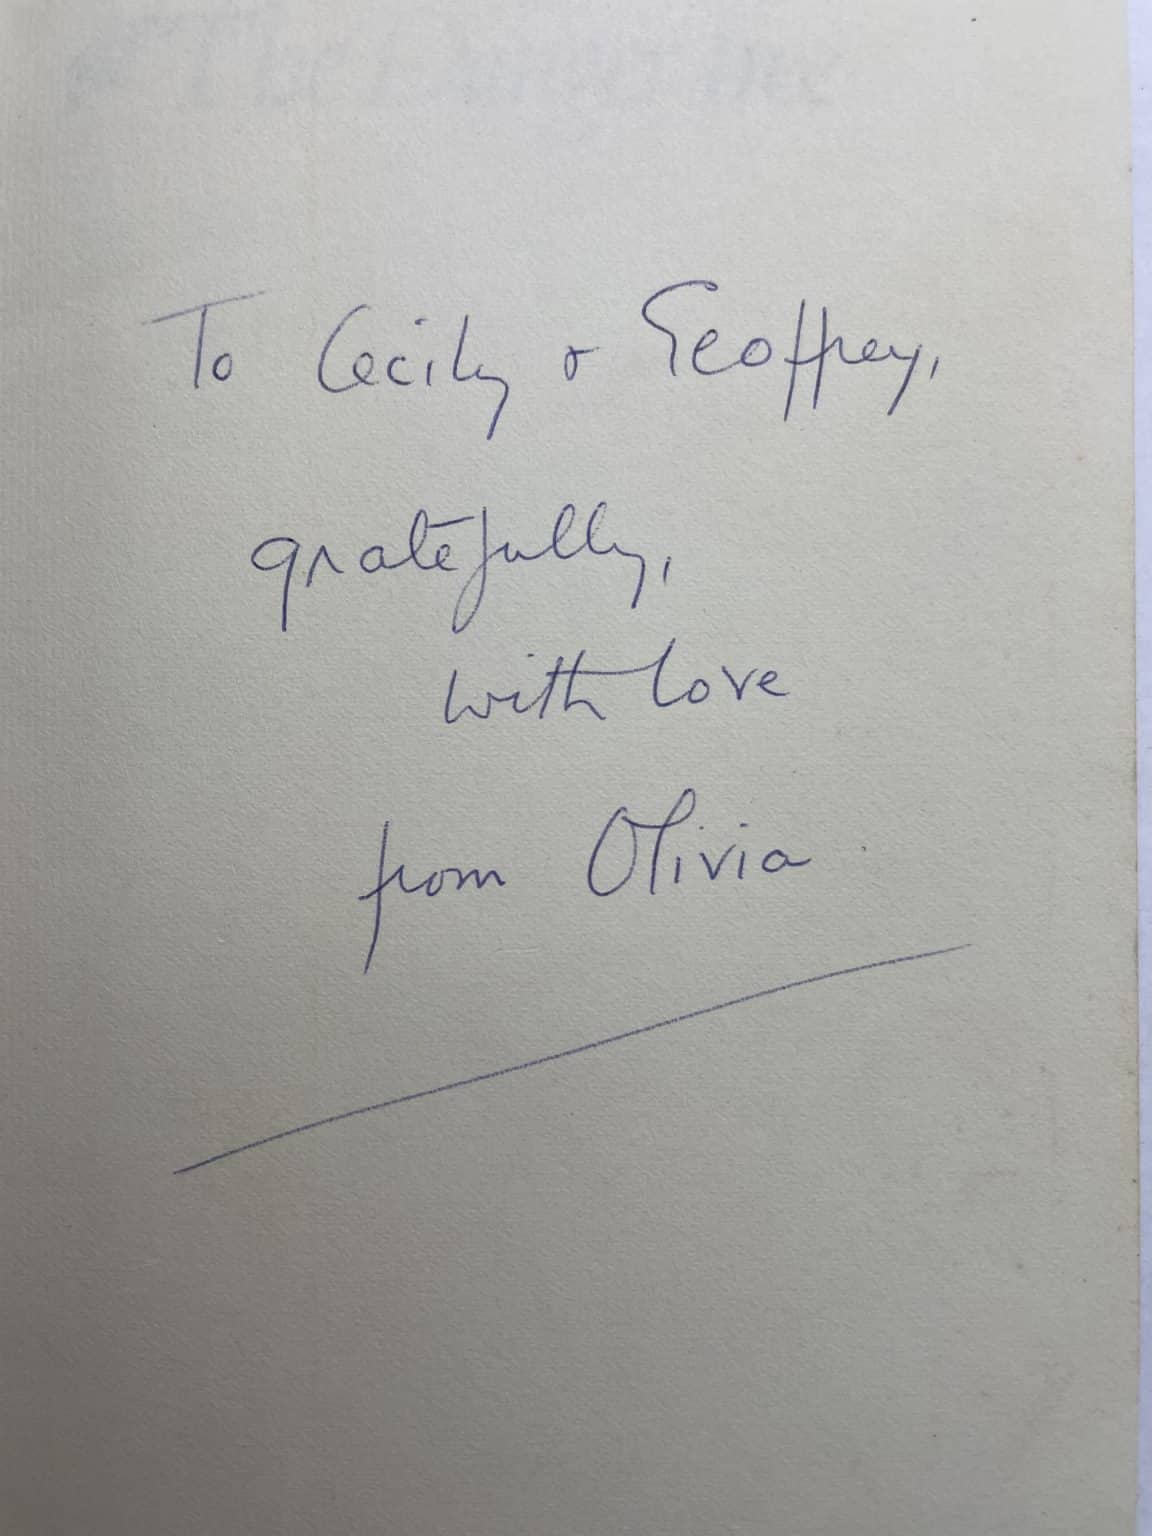 To Cecily & Geoffrey,
gratefully,
with love
from Olivia